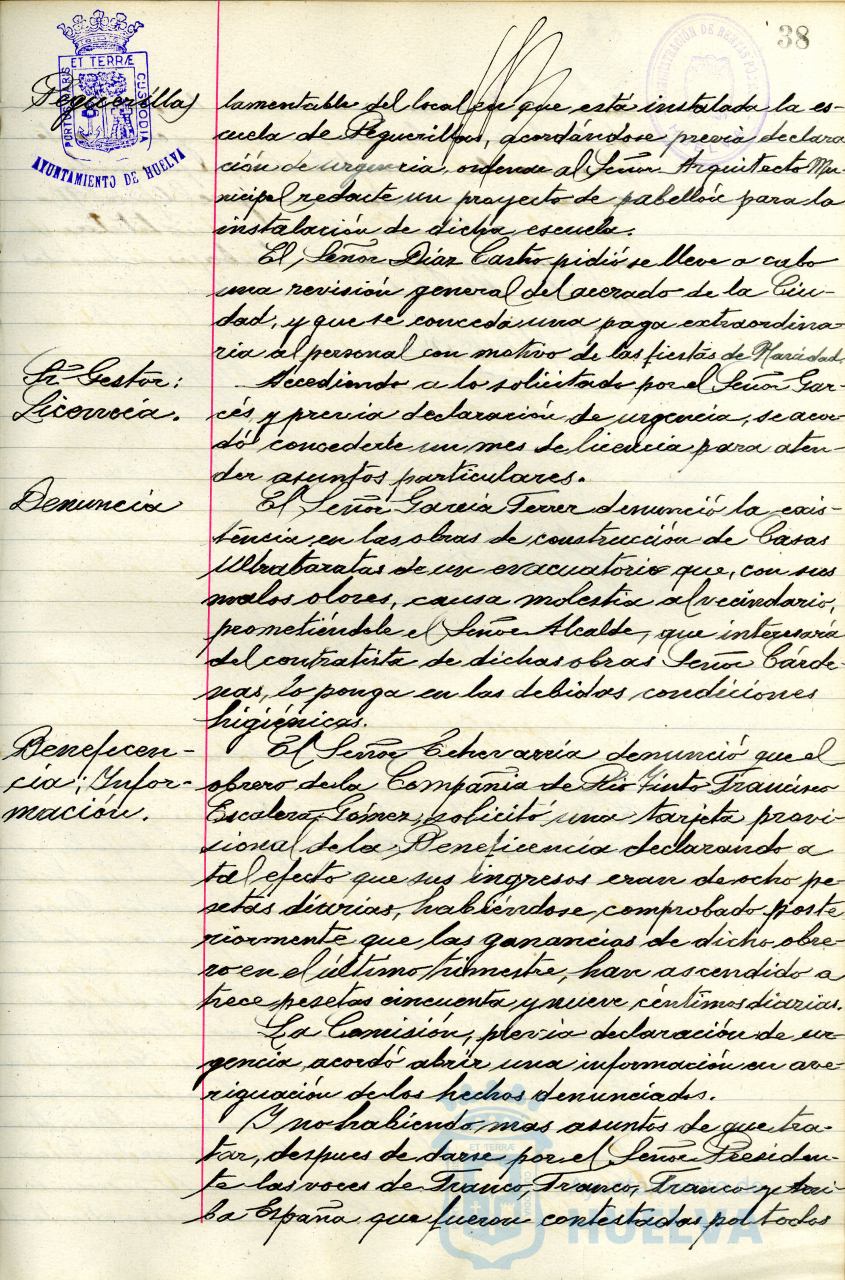 38
ET TERRÆ
PORTUS MARIS
CUSTODIA
AYUNTAMIENTO DE HUELVA
Peguerillas
lamentable del local en que está instalada la es-
cuela de Peguerillas, acordándose previa declara
ción de urgencia, ordenar al Señor Arquitecto Mu-
nicipal redacte un proyecto de pabellón para la
instalación de dicha escuela.
El Señor Díaz Castro pidió se lleve a cabo
una revisión general del acerado de la Ciu-
dad, y que se conceda una paga extraordina-
ria al personal con motivo de las fiestas de Navidad.
Sr. Gestor:
Licencia.
Accediendo a lo solicitado por el Señor Gar-
cés, y previa declaración de urgencia, se acor
dó concederle un mes de licencia para aten-
der asuntos particulares.
Denuncia
El Señor García Ferrer denunció la exis-
tencia en las obras de construcción de Casas
Ultrabaratas de un evacuatorio que, con sus
malos olores, causa molestia al vecindario,
prometiéndole el Señor Alcalde, que interesará
del contratista de dichas obras Señor Cárde-
nas, lo ponga en las debidas condiciones
higiénicas.
Beneficen-
cia: Infor-
mación.
El Señor Echevarría denunció que el
obrero de la Compañía de Rio Tinto Francisco
Escalera Gómez, solicitó una tarjeta provi-
sional de la Beneficencia declarando a
tal efecto que sus ingresos eran de ocho pe-
setas diarias, habiéndose comprobado poste
riormente que las ganancias de dicho obre-
ro en el último trimestre, han ascendido a
trece pesetas cincuenta y nueve céntimos diarias.
La Comisión, previa declaración de ur
gencia, acordó abrir una información en ave-
riguación de los hechos denunciados.
Y no habiendo mas asuntos de que tra-
tar, despues de darse por el Señor Presiden-
te las voces de Franco, Franco, Franco y Arri-
ba España que fueron contestadas por todos
ET TERRÆ
Ayuntamiento de
HUELVA